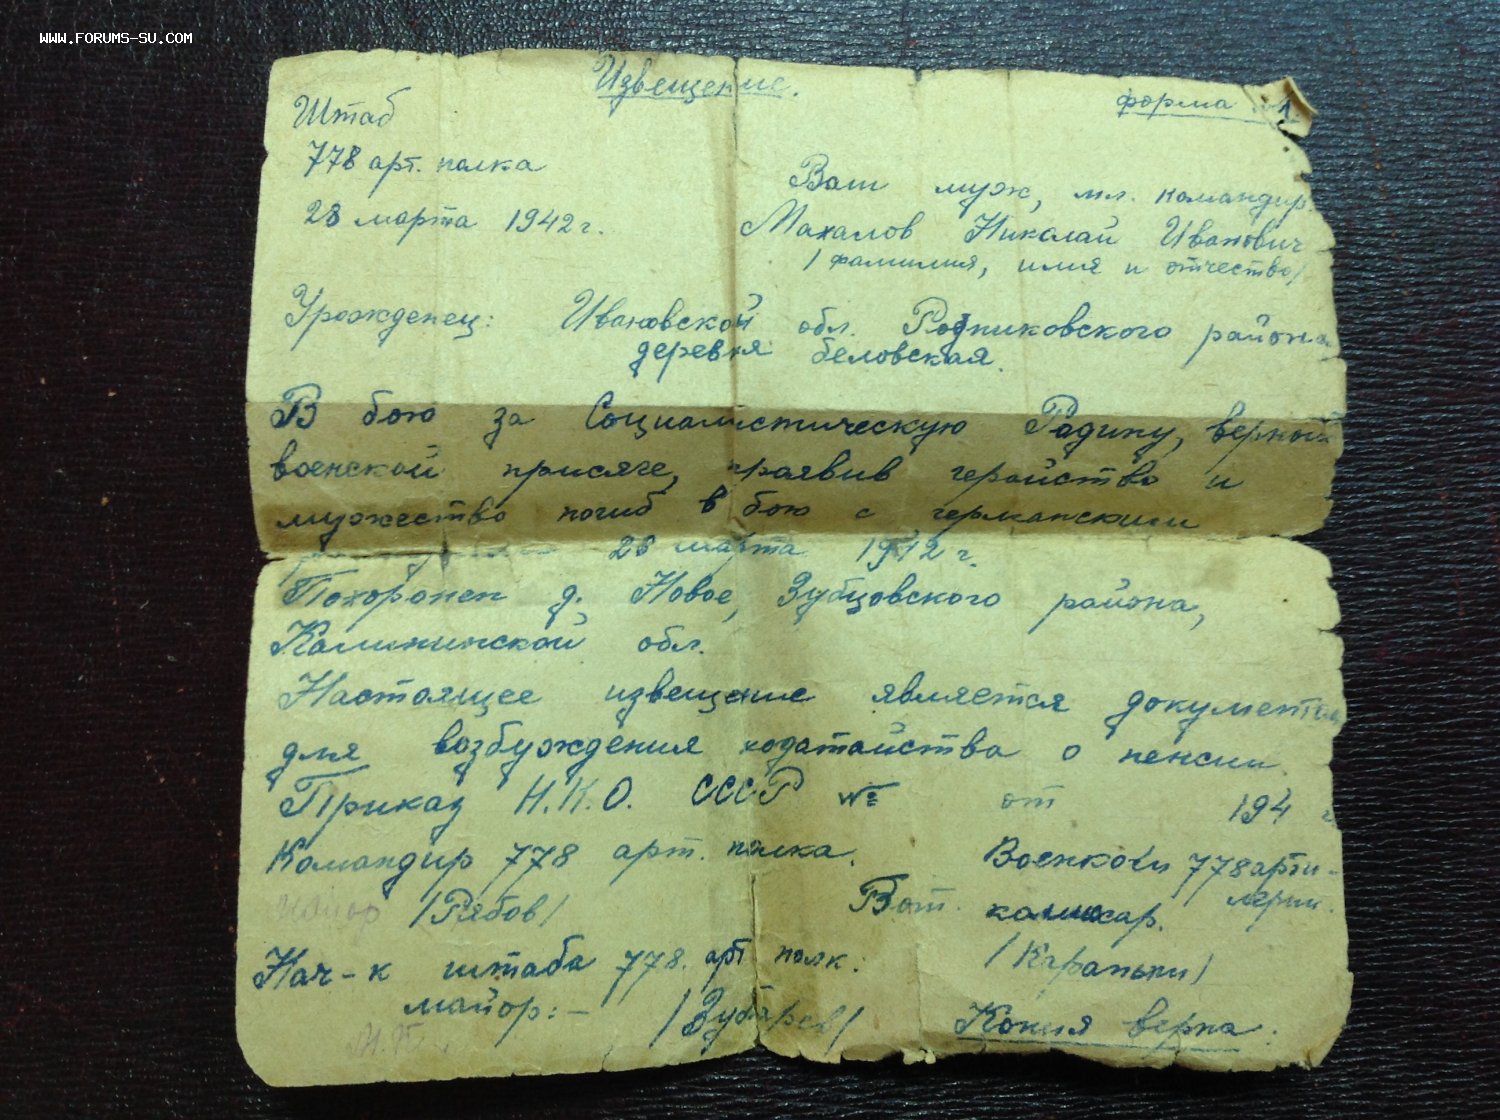 WWW.FORUMS-SU.COM
Извещение.
форма №1.
Штаб
778 арт. полка
28 марта 1942 г.
Ваш муж, мл. командир.
Махалов Николай Иванович
/фамилия, имя и отчество/
Урожденец: Ивановской обл. Родниковского района
деревня беловская.
В бою за Социалистическую Родину, верный
военской присяге, проявив геройство и
мужество погиб в бою с германскими
26 марта 1942 г.
Похоронен д. Новое, Зубцовского района,
Калининской обл.
Настоящее извещение является документом
для возбуждения ходатайства о пенсии
Приказ Н.К.О. СССР № от 194 г.
Командир 778 арт. полка.
майор /Рябов/
Военком 778 арти-
лерии.
Бат. комиссар.
/Карапыш/
Нач-к штаба 778. арт полк.
майор:- /Зубарев/
М.П.
Копия верна.